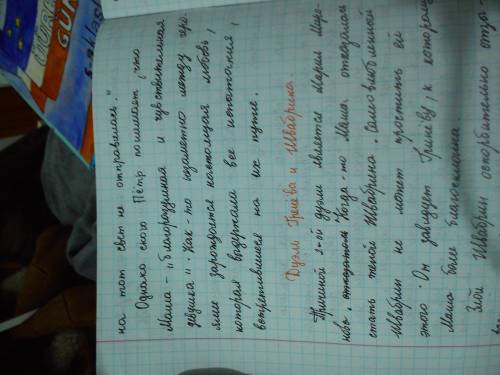 на тот свет не отправилась."
Однако скоро Пётр понимает, что
Маша - "благоразумная и чувствительная
девушка". Как-то незаметно между геро-
ями зарождается настоящая любовь,
которая выдержала все испытания,
встретившиеся на их пути.
Дуэль Гринёва и Швабрина.
Причиной 2-ой дуэли является Мария Миро-
нова. Когда-то Маша отказалась
стать женой Швабрина. Самовлюбленный
Швабрин не может простить ей
этого. Он завидует Гринёву, к которому
Маша более благосклонна.
Злой Швабрин оскорбительно отзы-